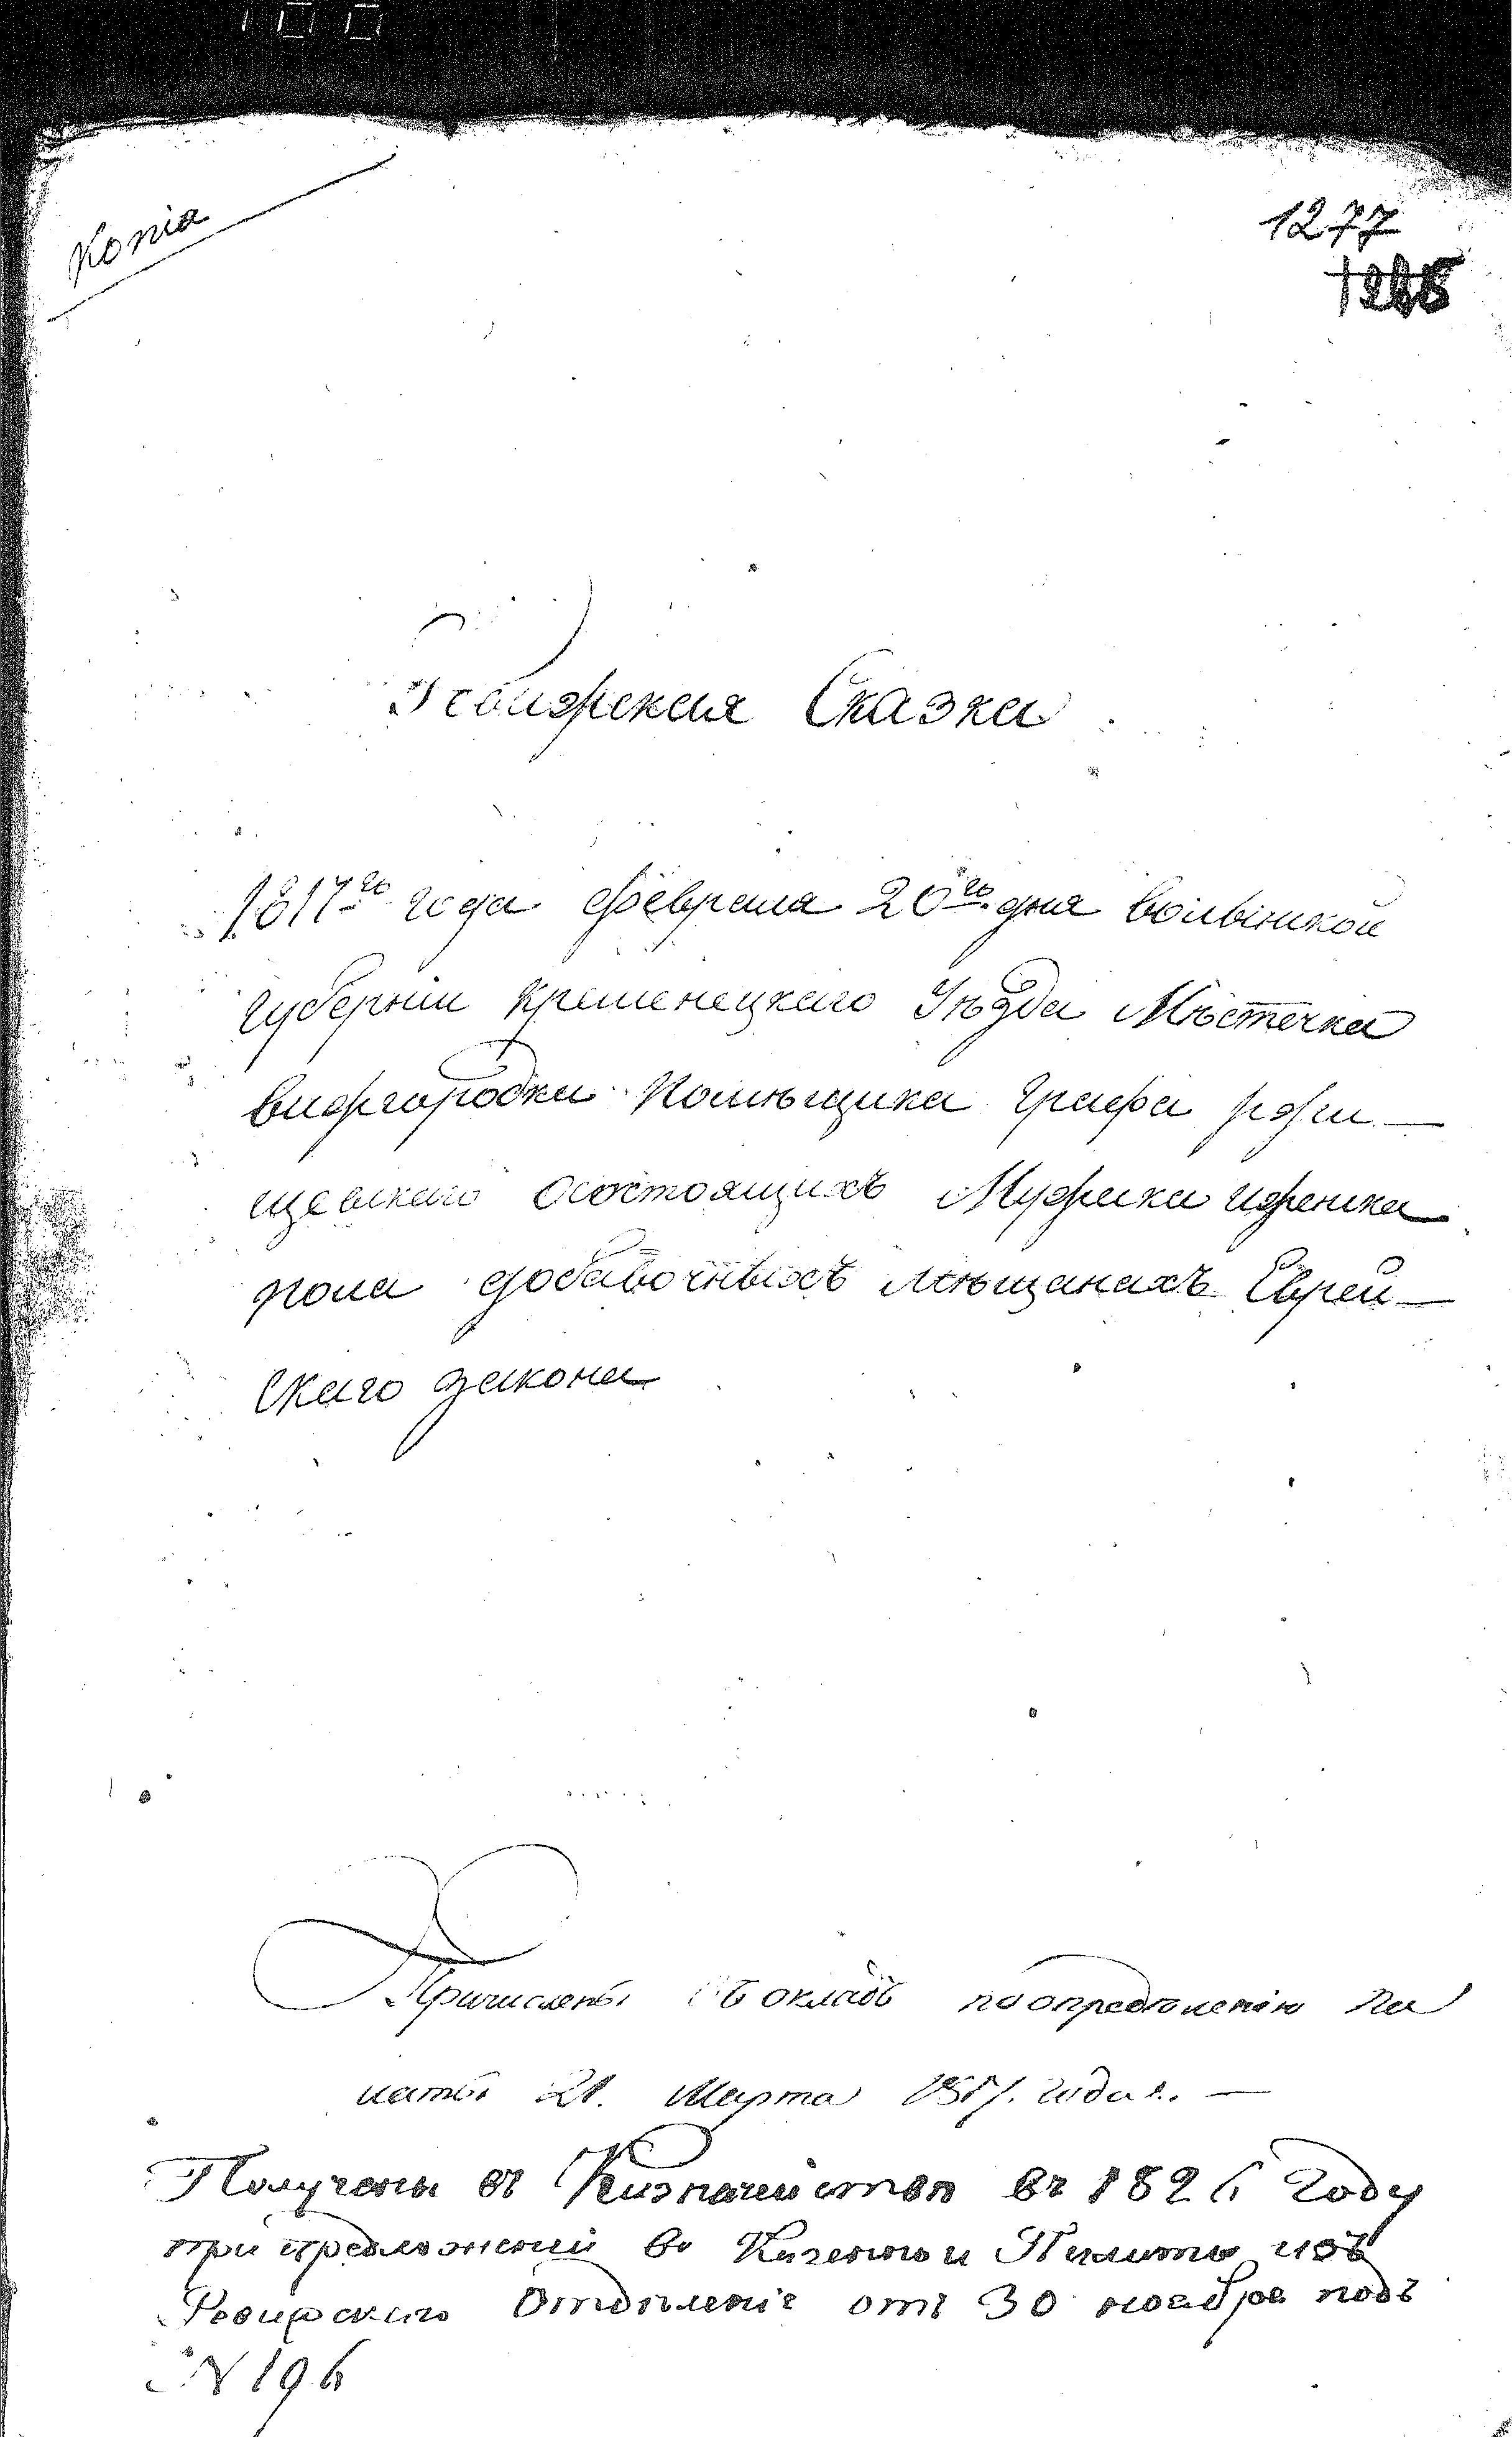 Копіа
1277
Ревижская Сказка
1817го года февраля 20го дня волынской
губерніи кременецкаго Уѣзда Мѣстечка
вижгородка помѣщика графа ржи—
щевскаго Осостоящихъ Мужска иженска
пола добавочныхъ мѣщанахъ Еврей—
скаго закона
Причислены въ окладъ поопредѣленію Па
латы 21. Марта 1817. года.—
Получены въ Казначействѣ въ 182 Году
при предложеніи во Казенной Палаты изъ
Ревижскаго Отдѣленіе отъ 30 ноября подъ
N 196